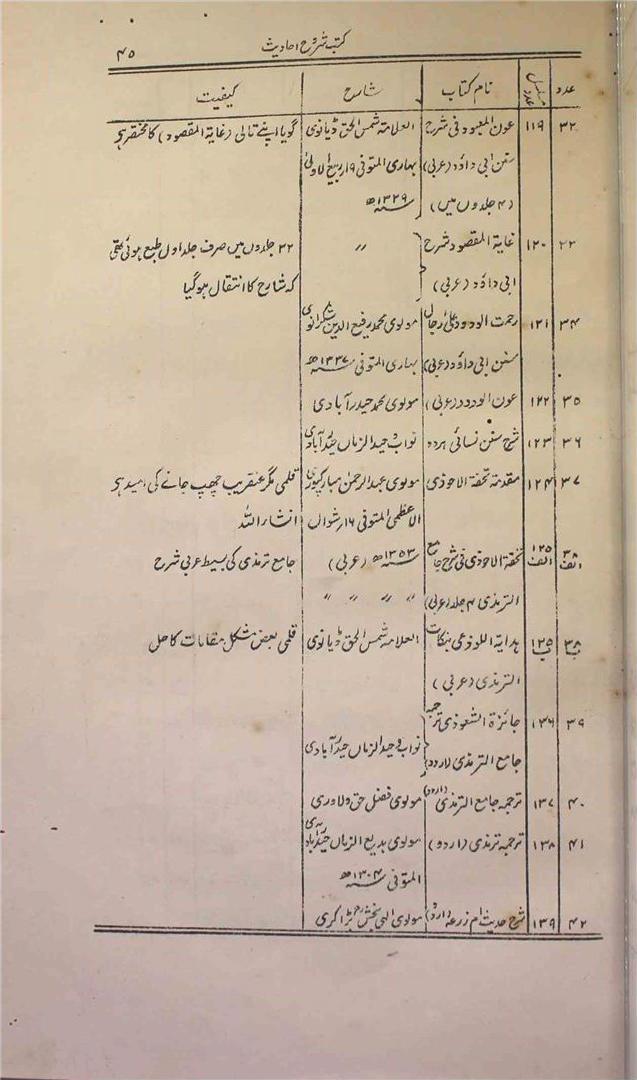 ۴۵ کتب شروح احادیث
عدد مسلسل عدد نام کتاب شارح کیفیت
۳۲ ۱۱۹ عون المعبود فی شرح العلامہ شمس الحق ڈیانوی گویا اپنے تالی (غایۃ المقصود) کا مختصر ہے
سنن ابی داؤد (عربی) بہاری المتوفی ۱۹ ربیع الاولیٰ
(۴ جلدوں میں) ۱۳۲۹ھ
۲۲ ۱۲۰ غایۃ المقصود شرح 〃 ۲۲ جلدوں میں صرف جلد اول طبع ہوئی تھی
ابی داؤد (عربی) کہ شارح کا انتقال ہوگیا
۳۴ ۱۲۱ رحمت الودود علی رجال مولوی محمد رفیع الدین شکرانوی
سنن ابی داؤد (عربی) بہاری المتوفی ۱۳۳۷ھ
۳۵ ۱۲۲ عون الودود (عربی) مولوی محمد حیدرآبادی
۳۶ ۱۲۳ شرح سنن نسائی نواب وحید الزماں حیدرآبادی
۳۷ ۱۲۴ مقدمہ تحفۃ الاحوذی مولوی عبدالرحمن مبارکپوری قلمی مگر عنقریب چھپ جانے کی امید ہے
الاعظمی المتوفی ۱۶ شوال انشاء اللہ
۳۸ الف ۱۲۵ الف تحفۃ الاحوذی فی شرح جامع ۱۳۵۳ھ (عربی) جامع ترمذی کی بسیط عربی شرح
الترمذی ۴ جلد (عربی) 〃 〃 〃 〃
۳۸ ب ۱۲۵ ب ہدایۃ اللوذعی بنکات العلامہ شمس الحق ڈیانوی قلمی بعض مشکل مقامات کا حل
الترمذی (عربی)
۳۹ ۱۳۶ جائزۃ الشعوذی ترجمہ
جامع الترمذی (اردو) نواب وحید الزماں حیدرآبادی
۴۰ ۱۳۷ ترجمہ جامع الترمذی (اردو) مولوی فضل حق دلاوری
۴۱ ۱۳۸ ترجمہ ترمذی (اردو) مولوی بدیع الزماں حیدرآبادی
المتوفی ۱۳۰۴ھ
۴۲ ۱۳۹ شرح حدیث ام زرعہ (اردو) مولوی الٰہی بخش بڑاکری